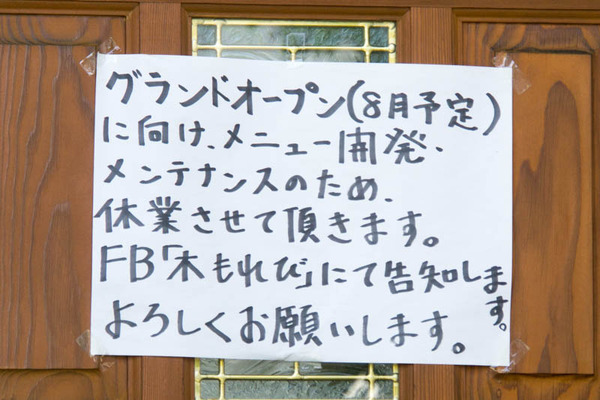 グランドオープン(8月予定)
に向け、メニュー開発、
メンテナンスのため、
休業させて頂きます。
FB「木もれび」にて告知します。
よろしくお願いします。